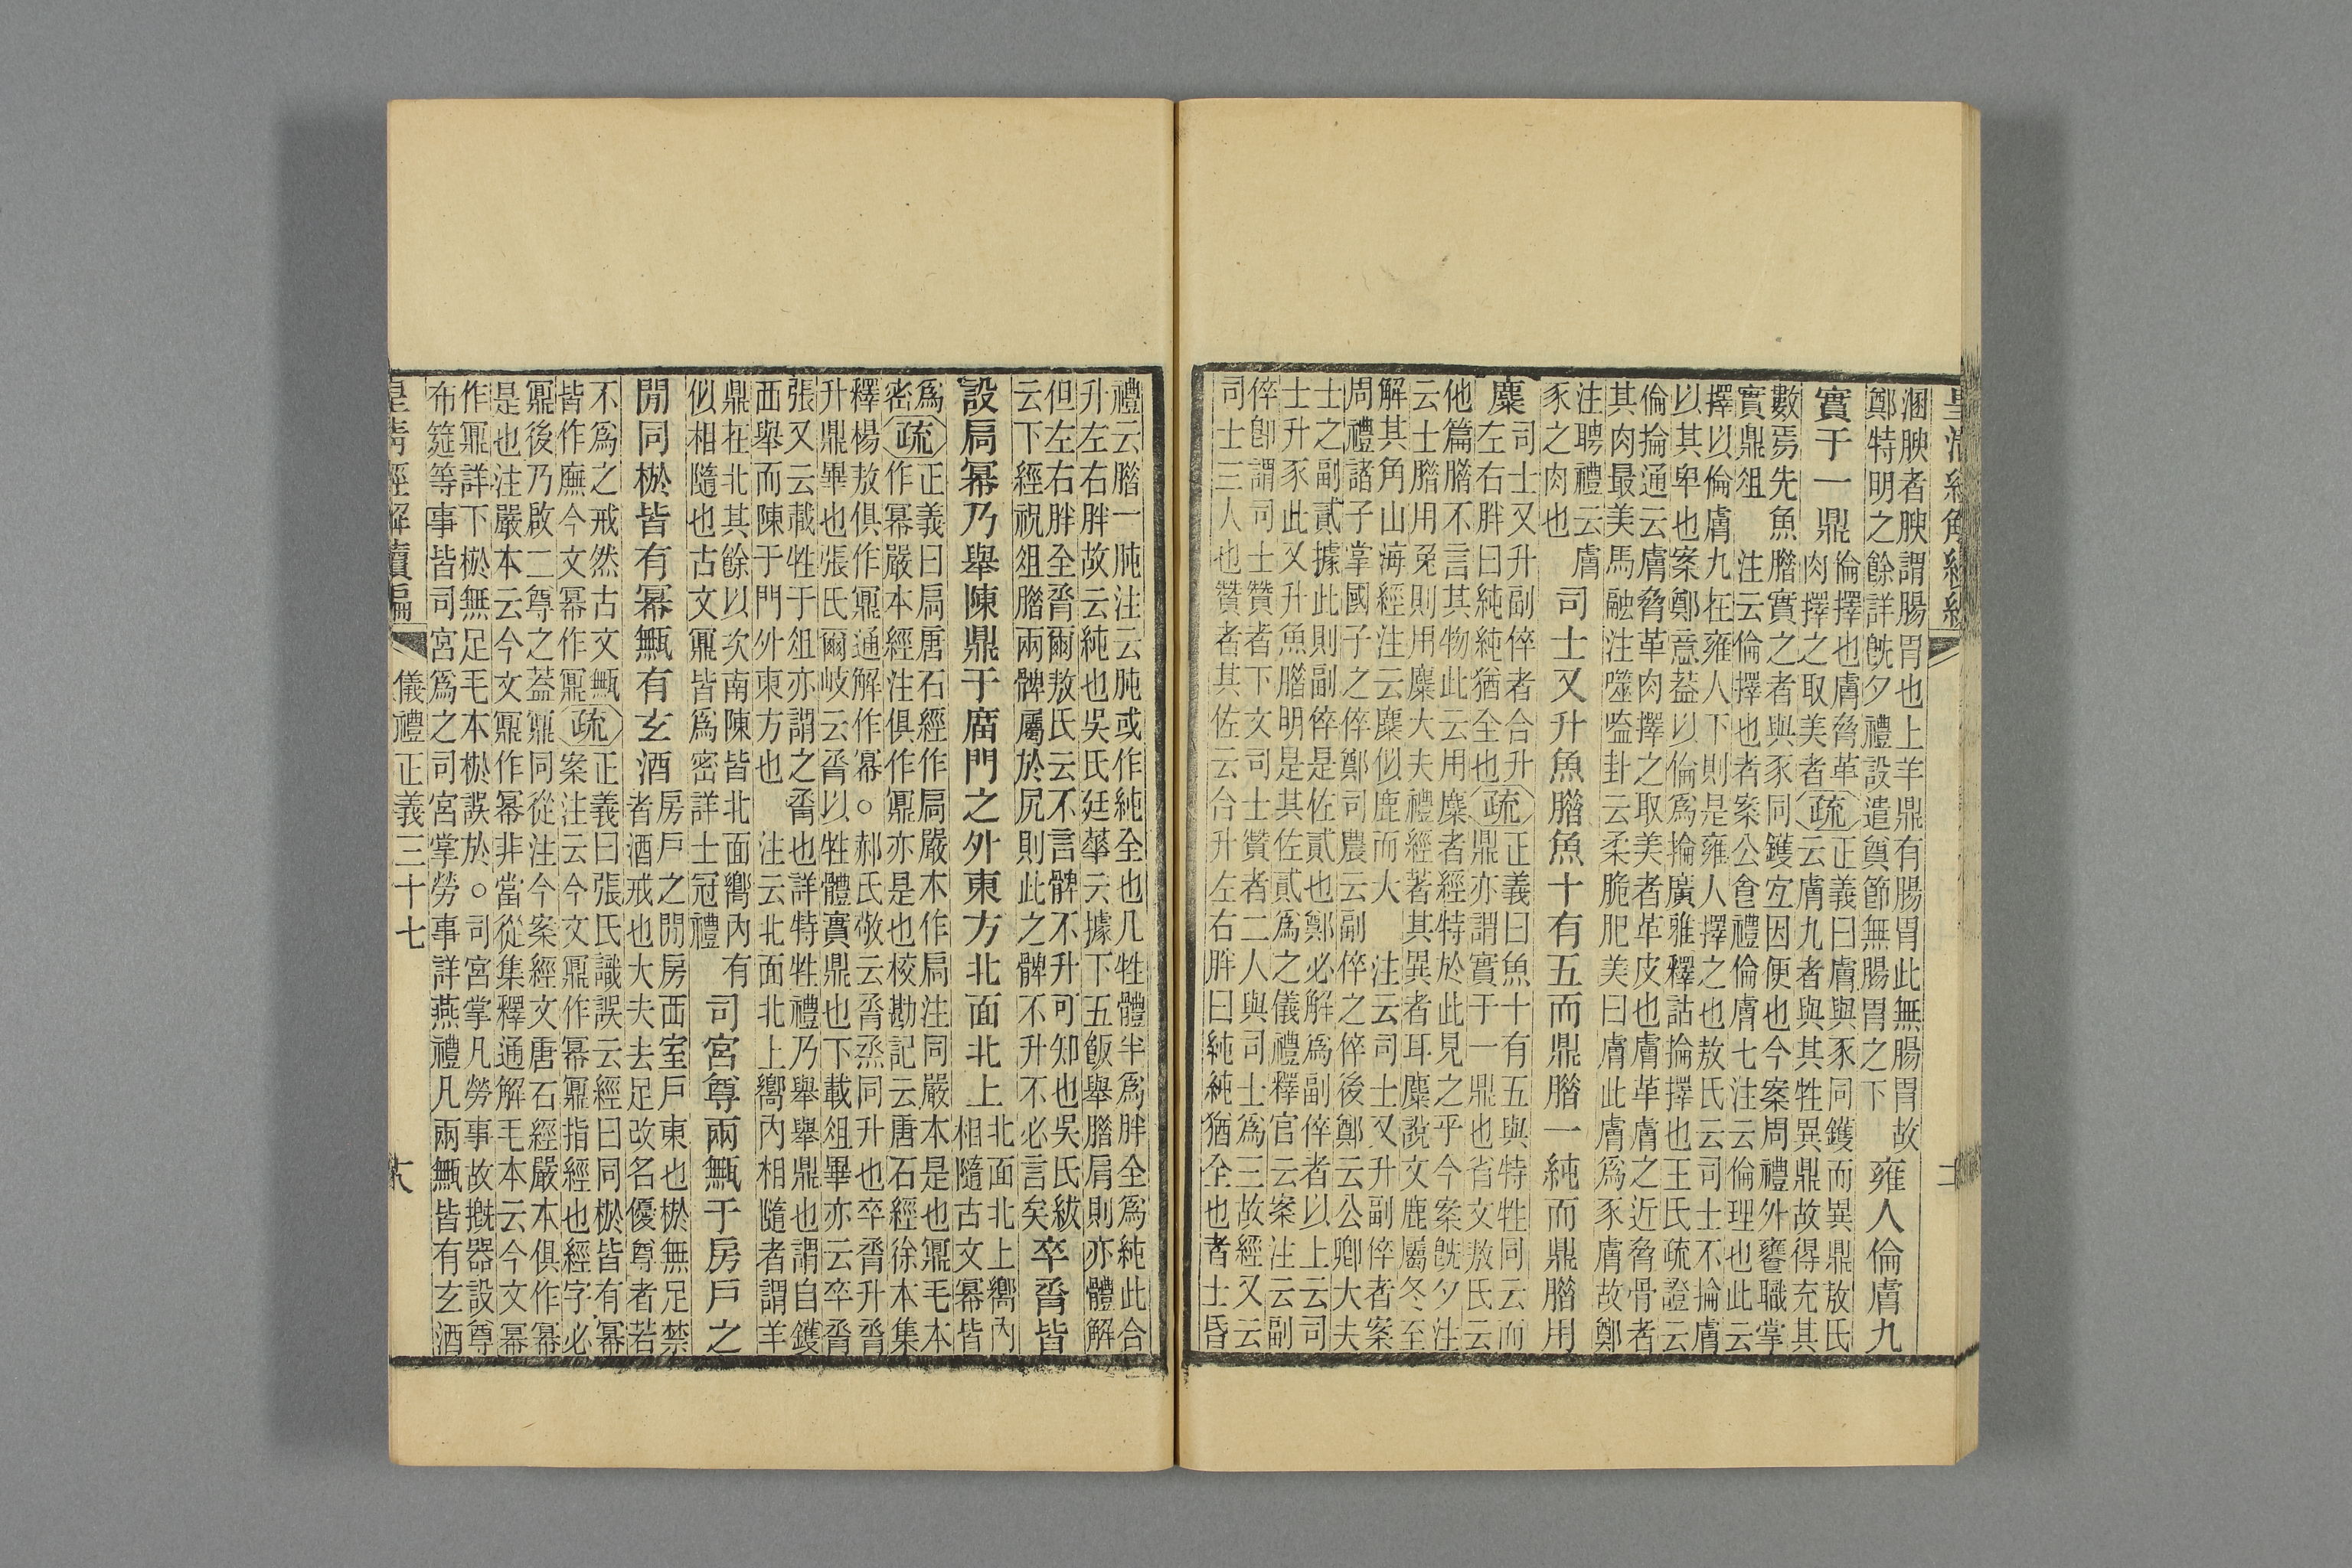 溷腴者腴謂腸胃也上羊鼎有腸胃此無腸胃故
鄭特明之餘詳旣夕禮設遣奠節無腸胃之下
雍人倫膚九
實于一鼎
倫擇也膚脅革
肉擇之取美者
疏
正義曰膚與豕同鑊而異鼎敖氏
云膚九者與其牲異鼎故得充其
數焉先魚腊實之者與豕同鑊宐因便也今案周禮外饔職掌
實鼎俎 注云倫擇也者案公食禮倫膚七注云倫理也此云
擇以倫膚九在雍人下則是雍人擇之也敖氏云司士不掄膚
以其卑也案鄭意葢以倫爲掄廣雅釋詁掄擇也王氏疏證云
倫掄通云膚脅革肉擇之取美者革皮也膚革膚之近脅骨者
其肉最美馬融注噬嗑卦云柔脆肥美曰膚此膚爲豕膚故鄭
注聘禮云膚
豕之肉也
司士又升魚腊魚十有五而鼎腊一純而鼎腊用
麋
司士又升副倅者合升
左右胖曰純純猶全也
疏
正義曰魚十有五與特牲同云而
鼎亦謂實于一鼎也省文敖氏云
他篇腊不言其物此云用麋者經特於此見之乎今案旣夕注
云士腊用兎則用麋大夫禮經著其異者耳麋說文鹿屬冬至
解其角山海經注云麋似鹿而大 注云司士又升副倅者案
周禮諸子掌國子之倅鄭司農云副倅之倅後鄭云公卿大夫
士之副貳據此則副倅是佐貳也鄭必解爲副倅者以上云司
士升豕此又升魚腊明是其佐貳爲之儀禮釋官云案注云副
倅卽謂司士贊者下文司士贊者二人與司士爲三故經又云
司士三人也贊者其佐云合升左右胖曰純純猶全也者士昏
禮云腊一肫注云肫或作純全也凡牲體半爲胖全爲純此合
升左右胖故云純也吳氏廷華云據下五飯舉腊肩則亦體解
但左右胖全脀爾敖氏云不言髀不升可知也吳氏紱
云下經祝俎腊兩髀屬於尻則此之髀不升不必言矣
卒脀皆
設扃冪乃舉陳鼎于廟門之外東方北面北上
北面北上嚮內
相隨古文冪皆
爲
密
疏
正義曰扃唐石經作扃嚴本作扃注同嚴本是也鼏毛本
作冪嚴本經注俱作鼏亦是也校勘記云唐石經徐本集
釋楊敖俱作鼏通解作冪○郝氏敬云脀烝同升也卒脀升脀
升鼎畢也張氏爾岐云脀以牲體實鼎也下載俎畢亦云卒脀
張又云載牲于俎亦謂之脀也詳特牲禮乃舉舉鼎也謂自鑊
西舉而陳于門外東方也 注云北面北上嚮內相隨者謂羊
鼎在北其餘以次南陳皆北面嚮內有
似相隨也古文鼏皆爲密詳士冠禮
司宮尊兩甒于房戶之
閒同棜皆有冪甒有玄酒
房戶之閒房西室戶東也棜無足禁
者酒戒也大夫去足改名優尊者若
不爲之戒然古文甒
皆作廡今文冪作鼏
疏
正義曰張氏識誤云經曰同棜皆有冪
案注云今文鼏作冪鼏指經也經字必
鼏後乃啟二尊之葢鼏同從注今案經文唐石經嚴本俱作冪
是也注嚴本云今文鼏作冪非當從集釋通解毛本云今文冪
作鼏詳下棜無足毛本棜誤於○司宮掌凡勞事故摡器設尊
布筵等事皆司宮爲之司宮掌勞事詳燕禮凡兩甒皆有玄酒
皇清經解續編
儀禮正義三十七